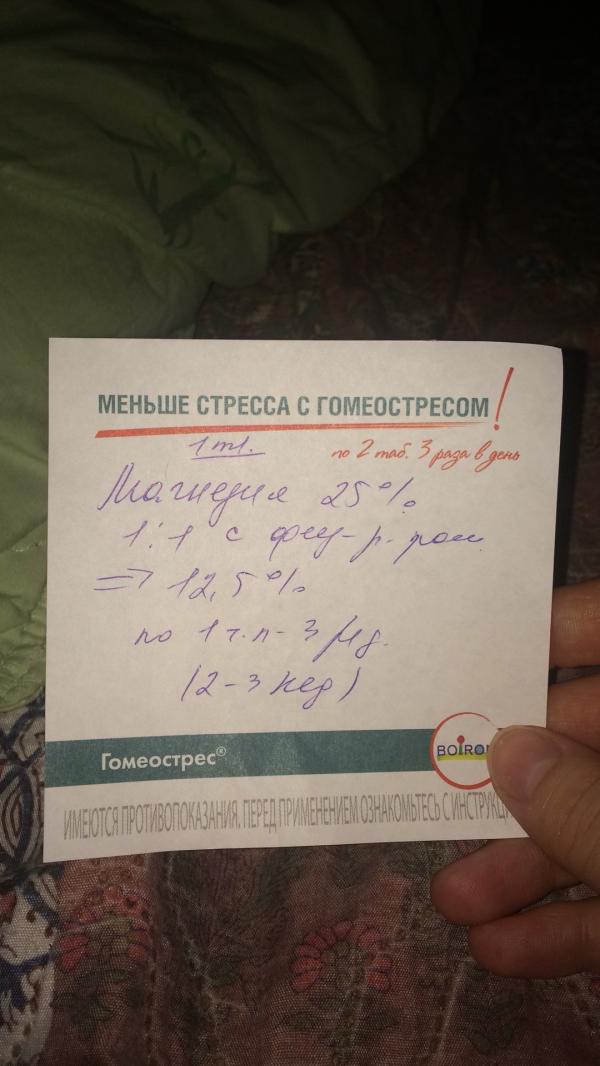 МЕНЬШЕ СТРЕССА С ГОМЕОСТРЕСОМ!
по 2 таб. 3 раза в день
Магнезия 25%
1:1 с физ-р-ром
⇒ 12,5%
по 1 т.л - 3 р/д.
(2-3 нед)
Гомеострес®
BOIRON
ИМЕЮТСЯ ПРОТИВОПОКАЗАНИЯ. ПЕРЕД ПРИМЕНЕНИЕМ ОЗНАКОМЬТЕСЬ С ИНСТРУКЦ